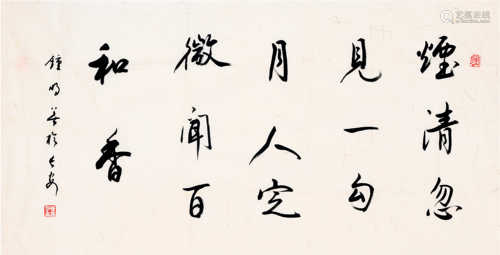 煙清忽
見一勾
月人定
微闻百
和香
鐘明善於長安